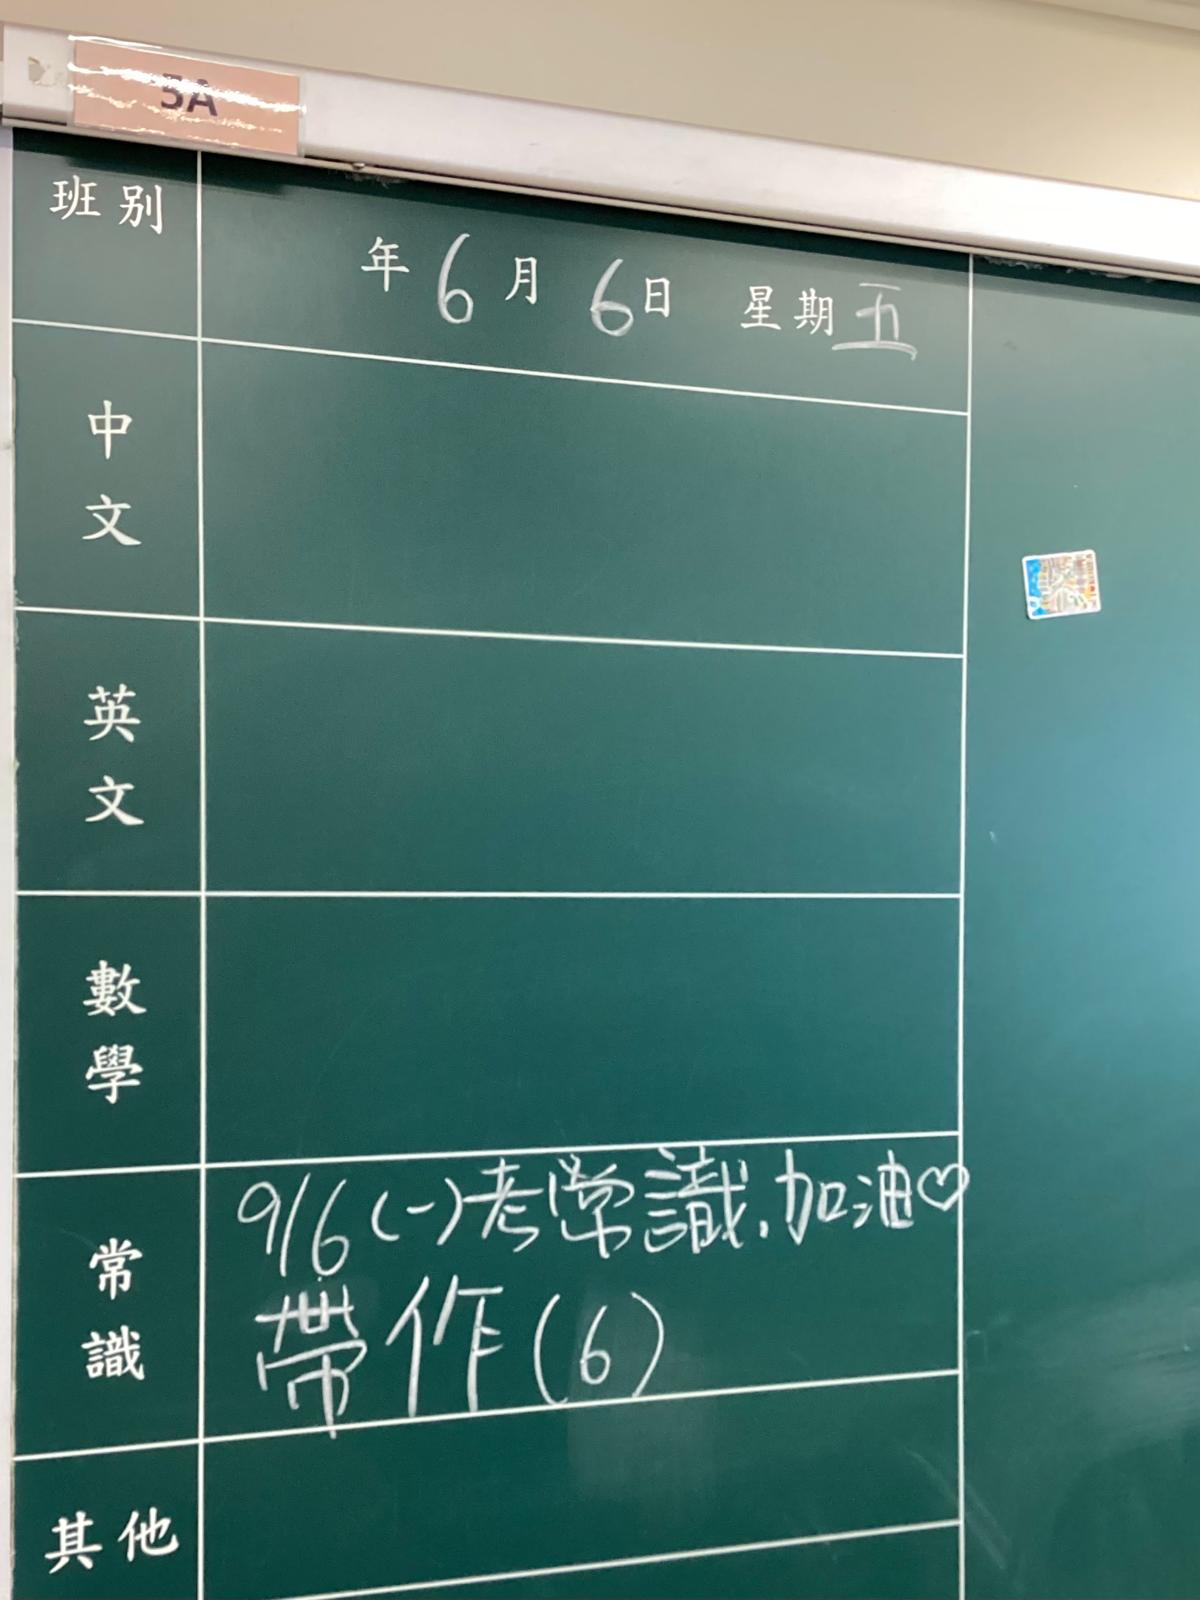 5A
班別
年6月 6日 星期五
中文
英文
數學
常識
9/6(一)考常識,加油♡
帶作(6)
其他